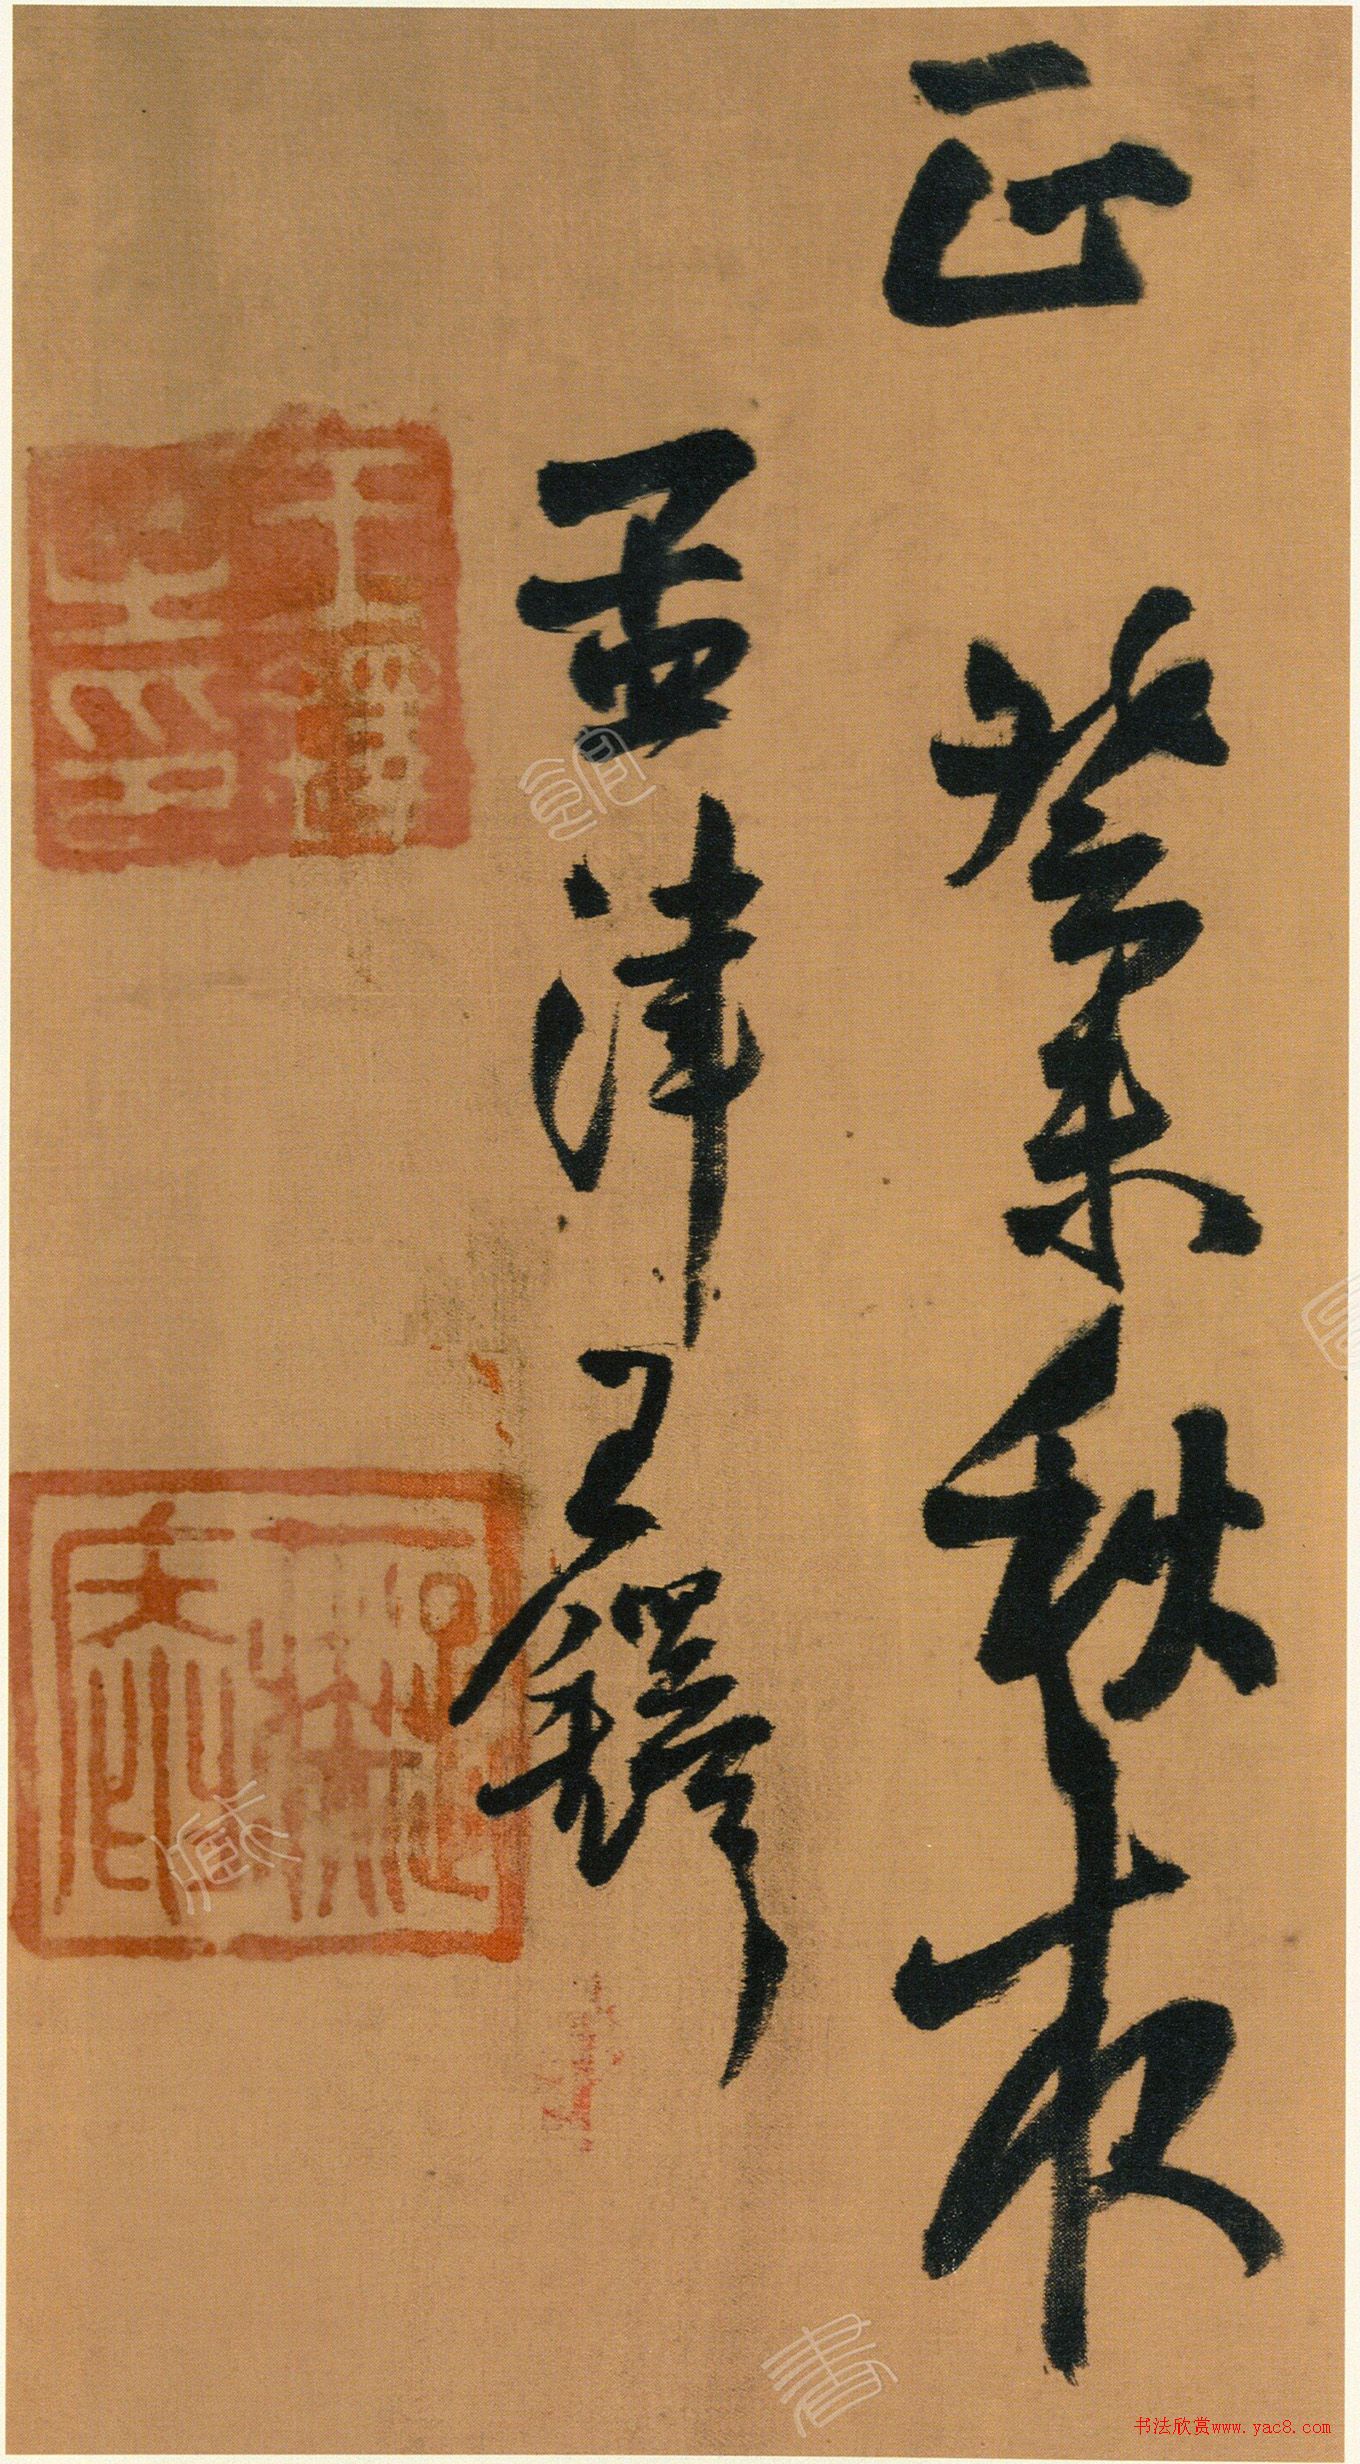 正
癸未秋夜
孟津王鐸
王鐸之印
书法欣赏www.yac8.com